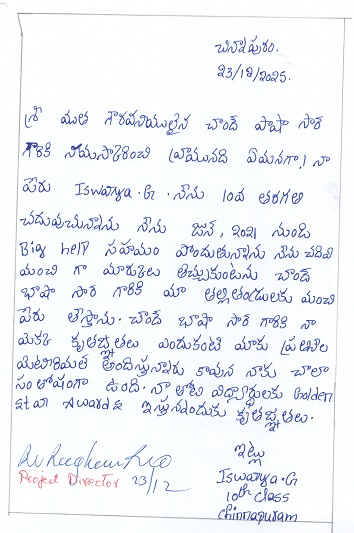 చిన్నాపురం.
23/12/2025.
శ్రీ మతి గౌరవనీయులైన చాంద్ పాషా సార్
గారికి నమస్కరించి వ్రాయునది ఏమనగా! నా
పేరు Iswarya.G. నేను 10వ తరగతి
చదువుచున్నాను నేను జూన్, 2021 నుండి
Big help సహాయం పొందుతున్నాను నేను చదివి
మంచి గా మార్కులు తెచ్చుకుంటను చాంద్
భాషా సార్ గారికి మా తల్లితండ్రులకు మంచి
పేరు తెస్తాను. చాంద్ భాషా సార్ గారికి నా
యొక్క కృతజ్ఞతలు ఎందుకంటే మాకు ప్రతినెల
మెటీరియల్ అందిస్తున్నారు కావున నాకు చాలా
సంతోషంగా ఉంది. నా తోటి విద్యార్థులకు Golden
Star Awards ఇస్తున్నందుకు కృతజ్ఞతలు.
ఇట్లు
Iswarya.G
10th class
chinnapuram
Project Director 23/12